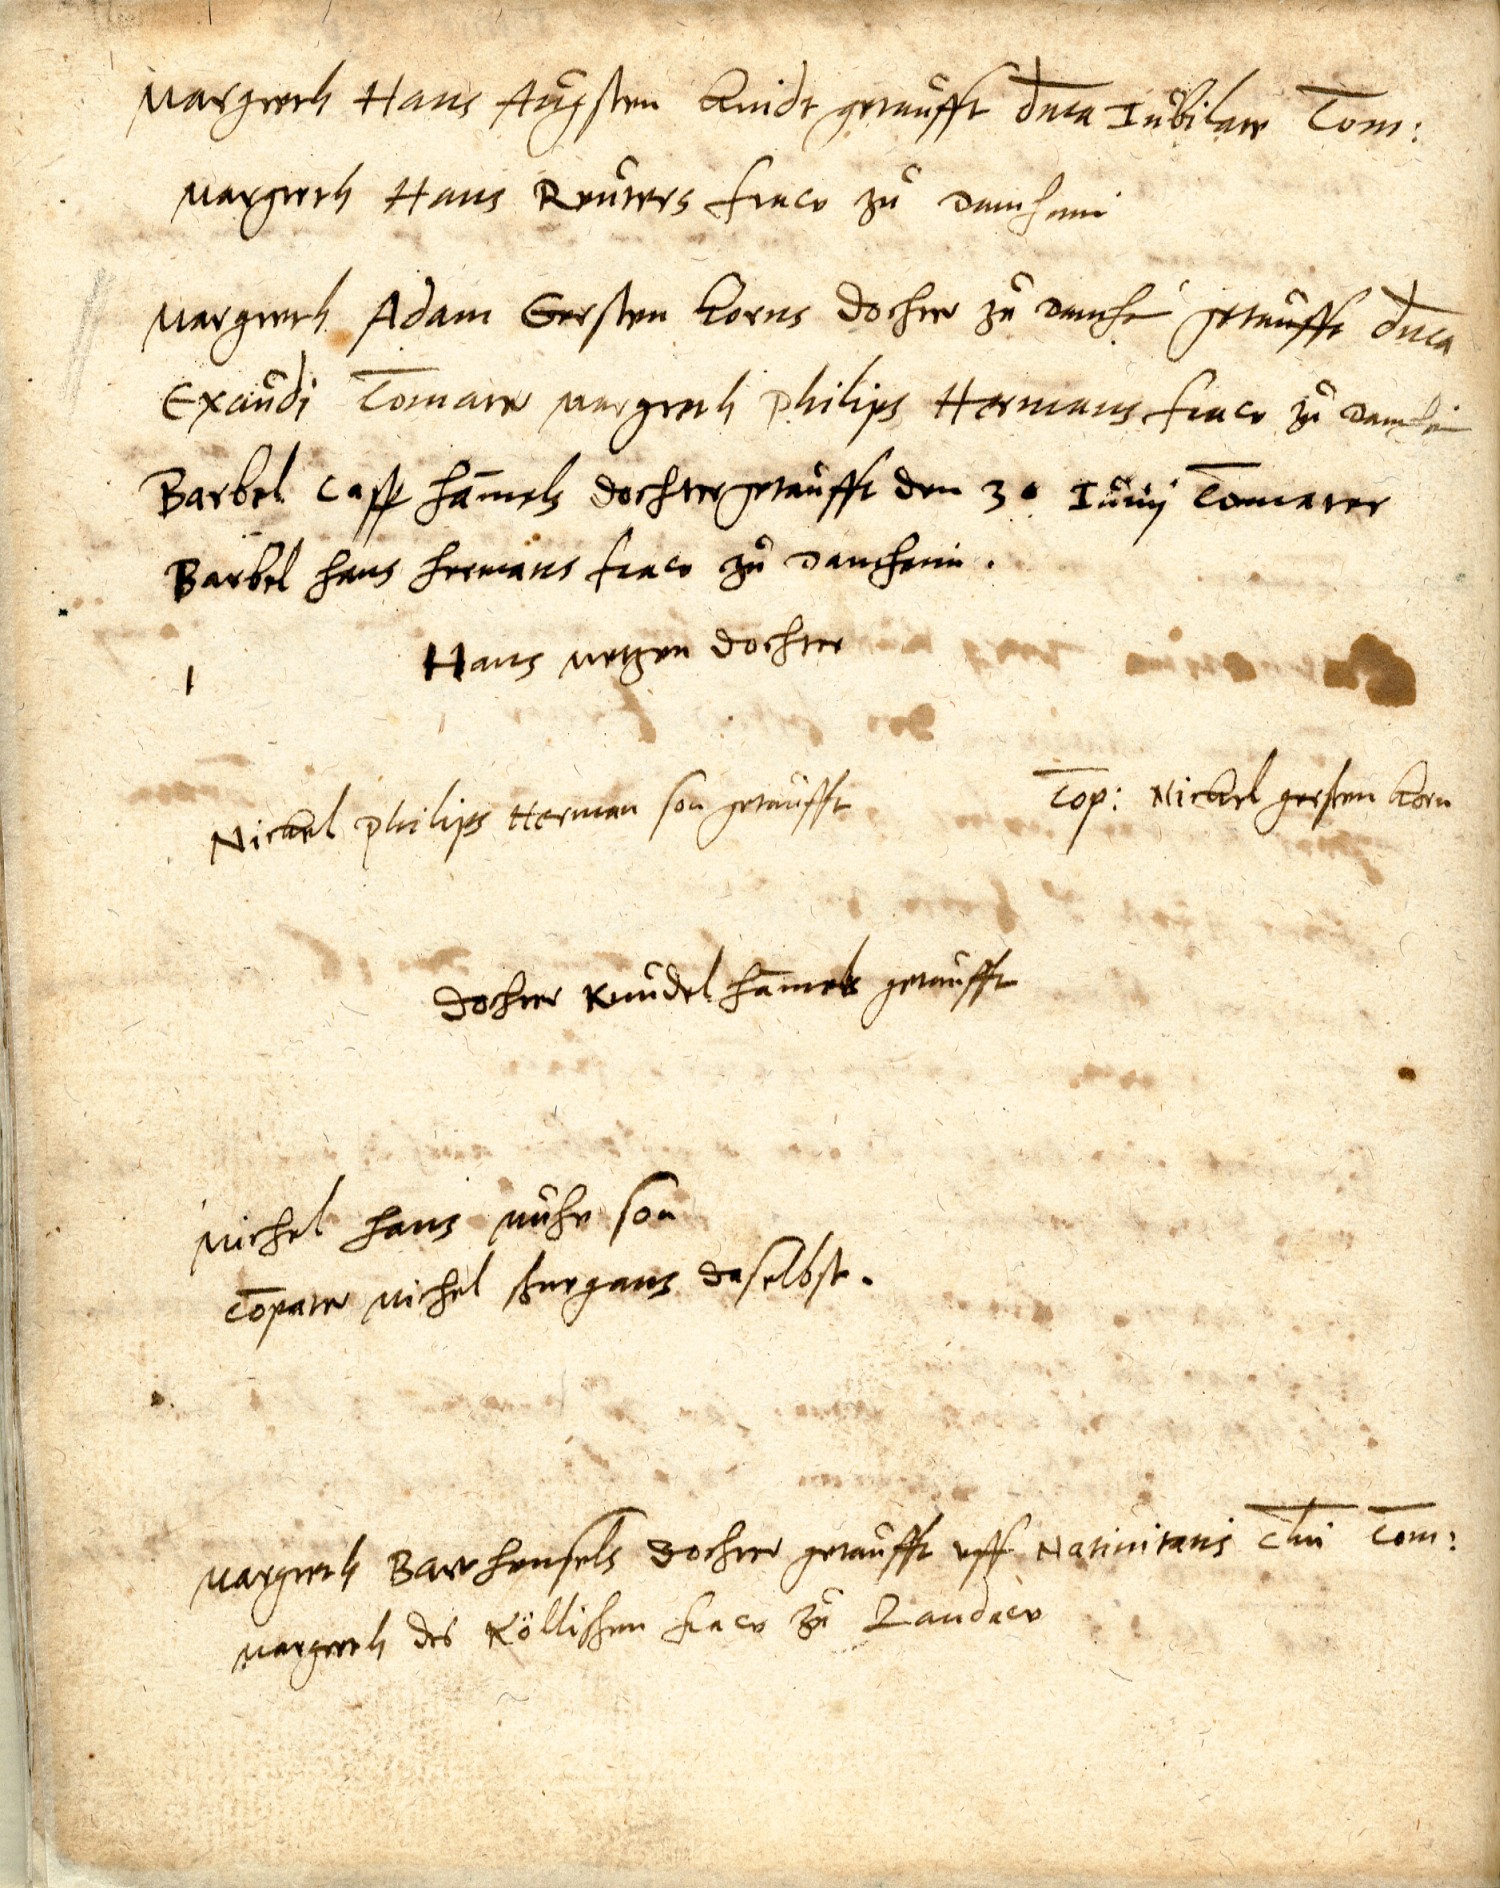 Margreth Hans Augsten kindt getaufft dnca Iubilate Com:
Margreth Hans Reuters fraw zu Danheim
Margreth Adam Gersten korns dochter zu Danh getaufft dnca
Exaudi Comater Margreth Philips Hermans fraw zu Danhei
Barbel Casp hamels dochter getaufft den 30 Iunij Comater
Barbel hans hermans fraw zu Danheim.
Hans Metzen dochter
Nickel Philips Herman son getaufft Cop: Nickel gersten korn
dochter hamels getaufft
Michel hans son
Copater Michel daselbst.
Margreth Barthensels dochter getaufft uff Natiuitatis Chri Com:
Margreth des Köllischen fraw zu Landaw